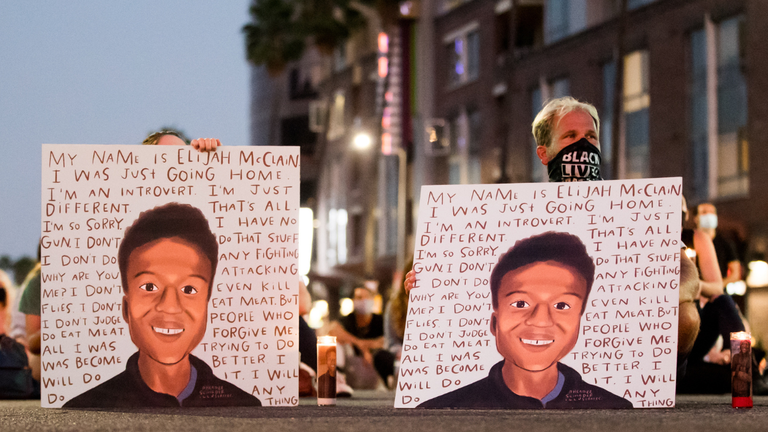 MY NAME IS ELIJAH MCCLAIN
I WAS JUST GOING HOME.
I'M AN INTROVERT. I'M JUST
DIFFERENT. THAT'S ALL.
I'M SO SORRY I HAVE NO
GUN. I DON'T DO THAT STUFF
I DON'T DO ANY FIGHTING
WHY ARE YOU ATTACKING
ME? I DON'T EVEN KILL
FLIES. I DON'T EAT MEAT. BUT
I DON'T JUDGE PEOPLE WHO
DO EAT MEAT FORGIVE ME
ALL I WAS TRYING TO DO
WAS BECOME BETTER I
WILL IT. I
DO WILL ANY
THING
BLACK
LIVES
MY NAME IS ELIJAH MCCLAIN
I WAS JUST GOING HOME.
I'M AN INTROVERT. I'M JUST
DIFFERENT. THAT'S ALL.
I'M SO SORRY I HAVE NO
GUN. I DON'T DO THAT STUFF
I DON'T DO ANY FIGHTING
WHY ARE YOU ATTACKING
ME? I DON'T EVEN KILL
FLIES. I DON'T EAT MEAT. BUT
I DON'T JUDGE PEOPLE WHO
DO EAT MEAT FORGIVE ME.
ALL I WAS TRYING TO DO
WAS BECOME BETTER I
WILL IT. I WILL
DO ANY
THING